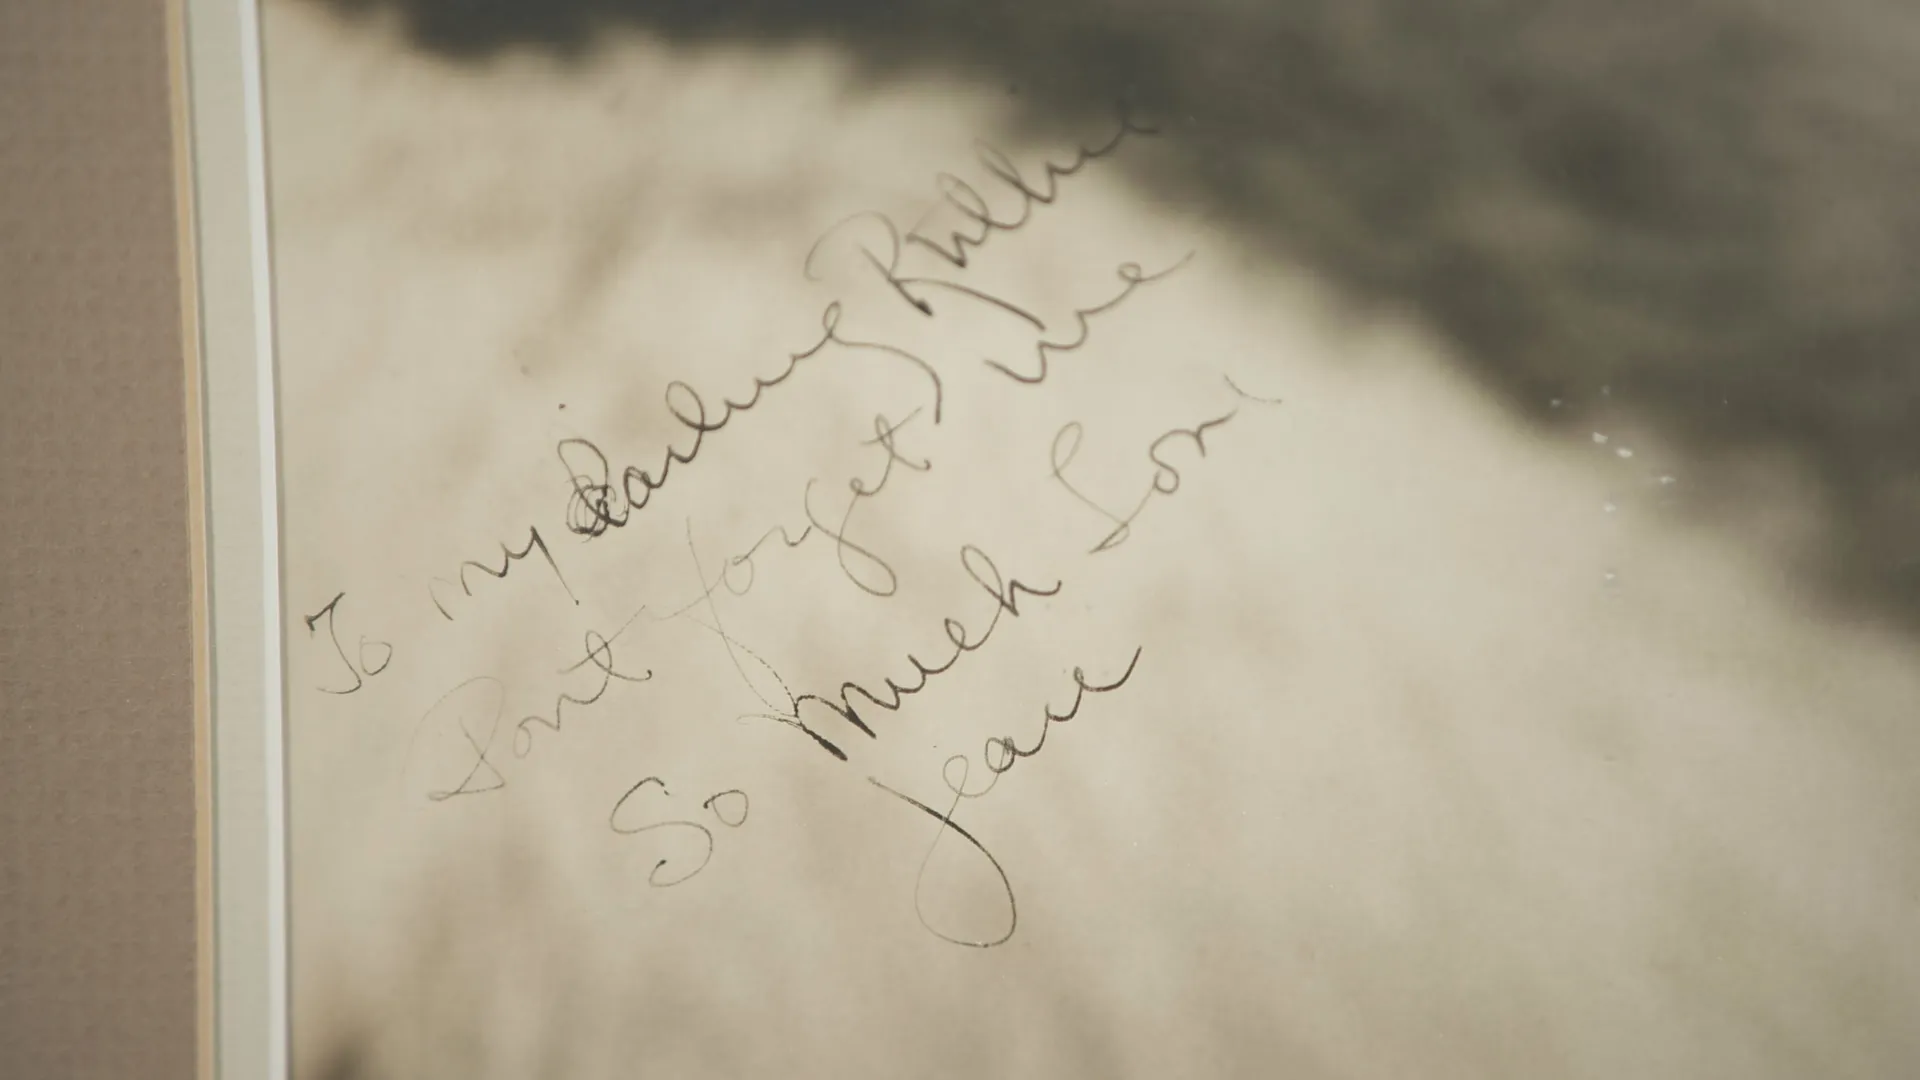 To my darling Ruthie
Dont forget me
So Much Love
Jeane